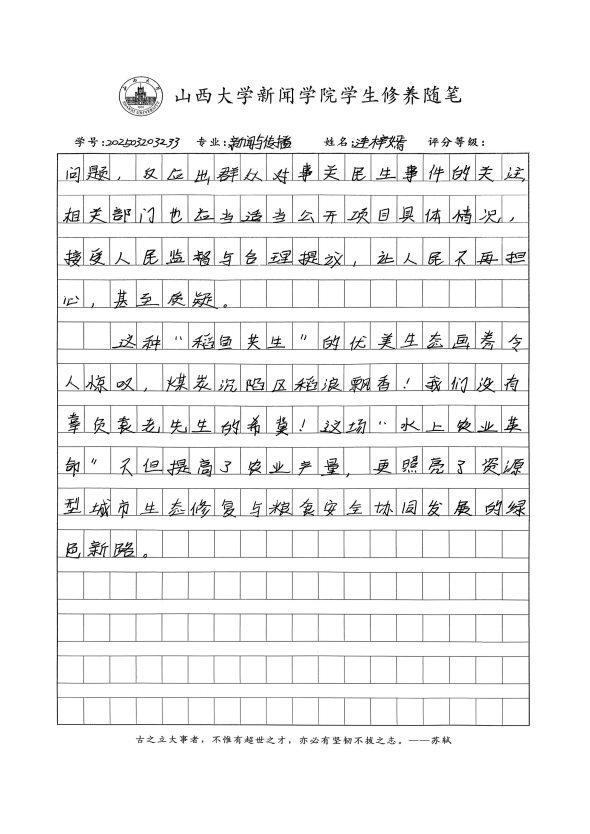 山西大学新闻学院学生修养随笔
学号:202503203233 专业:新闻与传播 姓名:连梓嫣 评分等级:
问题，反应出群众对事关民生事件的关注,
相关部门也应当适当公开项目具体情况,
接受人民监督与合理提议，让人民不再担
心，甚至质疑。
这种“稻鱼共生”的优美生态画卷令
人惊叹，煤炭沉陷区稻浪飘香！我们没有
辜负袁老先生的希冀！这场“水上农业革
命”不但提高了农业产量，更照亮了资源
型城市生态修复与粮食安全协同发展的绿
色新路。
古之立大事者，不惟有超世之才，亦必有坚韧不拔之志。——苏轼